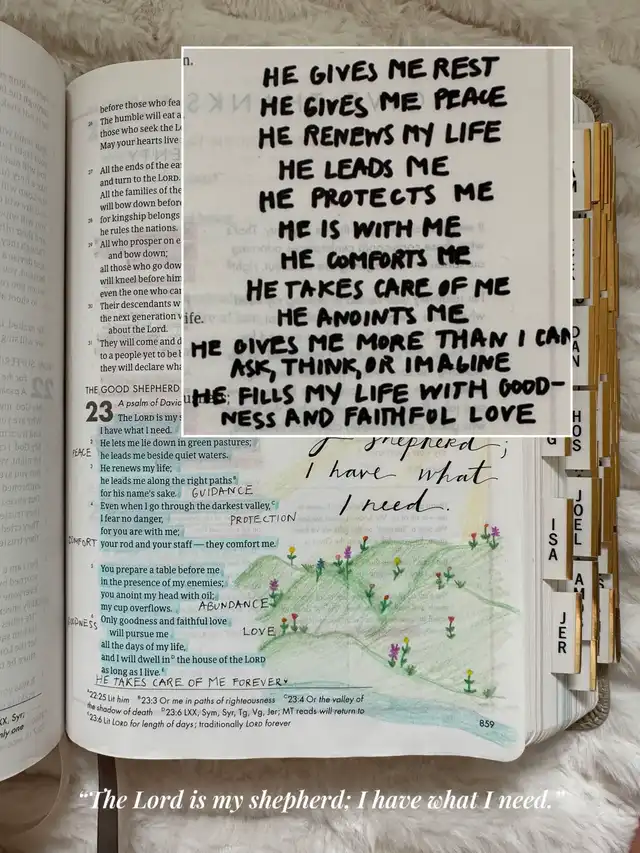 n.
HE GIVES ME REST
HE GIVES ME PEACE
HE RENEWS MY LIFE
HE LEADS ME
HE PROTECTS ME
HE IS WITH ME
HE COMFORTS ME
HE TAKES CARE OF ME
HE ANOINTS ME
HE GIVES ME MORE THAN I CAN
ASK, THINK, OR IMAGINE
HE FILLS MY LIFE WITH GOOD-
NESS AND FAITHFUL LOVE
ife.
before those who fea
26 The humble will eat a
those who seek the
May your hearts live
27 All the ends of the ea
and turn to the LORD.
All the families of the
will bow down before
28 for kingship belongs
he rules the nations.
29 All who prosper on e
and bow down;
all those who go down
will kneel before him
even the one who can
30 Their descendants w
the next generation w
about the Lord.
31 They will come and d
to a people yet to be b
they will declare what
THE GOOD SHEPHERD
A psalm of David
23 The LORD is my s
I have what I need.
2 He lets me lie down in green pastures;
PEACE
he leads me beside quiet waters.
3 He renews my life;
he leads me along the right paths B
for his name's sake. GUIDANCE
4 Even when I go through the darkest valley, C
I fear no danger, PROTECTION
for you are with me;
COMFORT your rod and your staff — they comfort me.
5 You prepare a table before me
in the presence of my enemies;
you anoint my head with oil;
my cup overflows. ABUNDANCE
6 Only goodness and faithful love
GOODNESS will pursue me LOVE
all the days of my life,
and I will dwell in D the house of the LORD
as long as I live. E
HE TAKES CARE OF ME FOREVER
shepherd;
I have what
I need.
A 22:25 Lit him B 23:3 Or me in paths of righteousness C 23:4 Or the valley of
the shadow of death D 23:6 LXX, Sym, Syr, Tg, Vg, Jer; MT reads will return to
E 23:6 Lit LORD for length of days; traditionally LORD forever
859
XX, Syr,
only one
DAN
HOS
JOEL
AM
G
ISA
JER
“The Lord is my shepherd: I have what I need.”